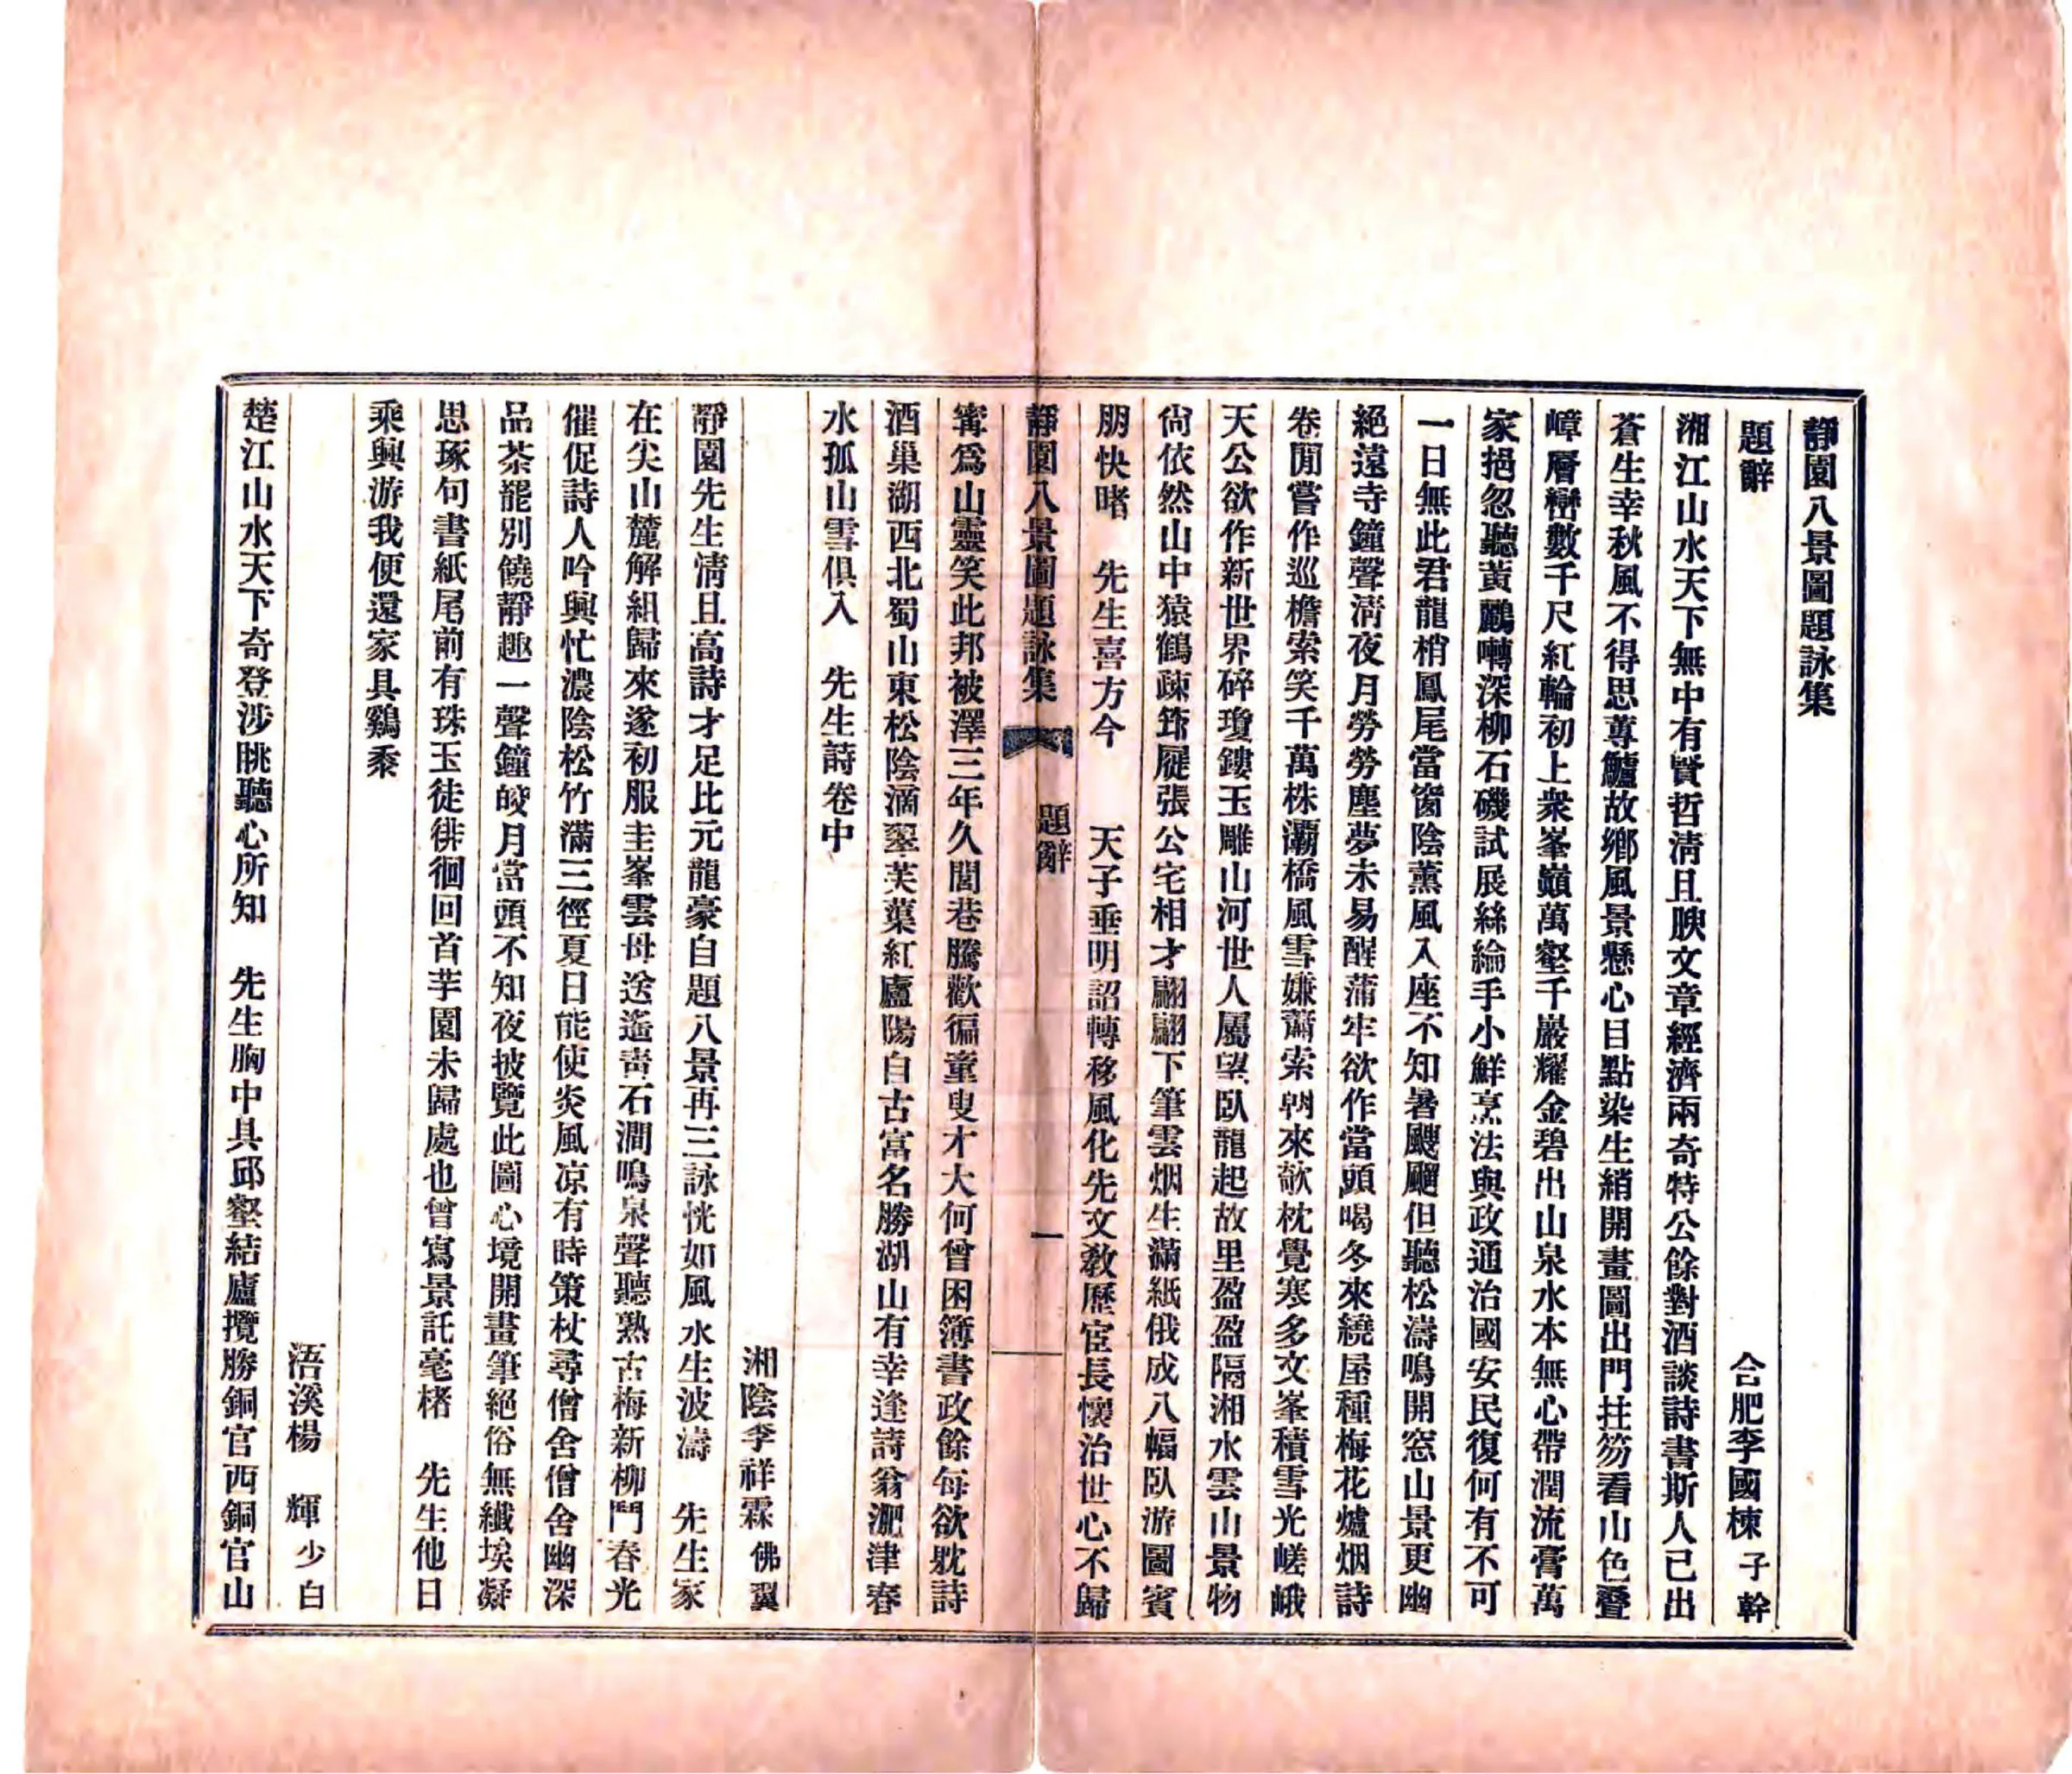 靜園八景圖題詠集
題辭 合肥李國棟子幹
湘江山水天下無中有賢哲淸且腴文章經濟兩奇特公餘對酒談詩書斯人已出
蒼生幸秋風不得思蓴鱸故鄉風景懸心目點染生綃開畫圖出門拄笏看山色疊
嶂層巒數千尺紅輪初上衆峯巔萬壑千巖耀金碧出山泉水本無心帶潤流膏萬
家挹忽聽黃鸝囀深柳石磯試展絲綸手小鮮烹法與政通治國安民復何有不可
一日無此君龍梢鳳尾當窗陰薰風入座不知暑颼飀但聽松濤鳴開窓山景更幽
絕遠寺鐘聲淸夜月勞勞塵夢未易醒蒲牢欲作當頭喝冬來繞屋種梅花爐烟詩
卷閒嘗作巡檐索笑千萬株灞橋風雪嫌蕭索朝來欹枕覺寒多文峯積雪光嵯峨
天公欲作新世界碎瓊鏤玉雕山河世人屬望臥龍起故里盈盈隔湘水雲山景物
尙依然山中猿鶴疎筇屣張公宅相才翩翩下筆雲烟生滿紙俄成八幅臥游圖賓
朋快睹 先生喜方今 天子垂明詔轉移風化先文敎歷宦長懷治世心不歸
靜園八景圖題詠集 題辭 一
寗爲山靈笑此邦被澤三年久閭巷騰歡徧童叟才大何曾困簿書政餘每欲耽詩
酒巢湖西北蜀山東松陰滴翠芙蕖紅廬陽自古富名勝湖山有幸逢詩翁淝津春
水孤山雪俱入 先生詩卷中
湘陰李祥霖佛翼
靜園先生淸且高詩才足比元龍豪自題八景再三詠恍如風水生波濤 先生家
在尖山麓解組歸來遂初服圭峯雲母送遙靑石澗鳴泉聲聽熟古梅新柳鬥春光
催促詩人吟興忙濃陰松竹滿三徑夏日能使炎風凉有時策杖尋僧舍僧舍幽深
品茶罷別饒靜趣一聲鐘皎月當頭不知夜披覽此圖心境開畫筆絕俗無纖埃凝
思琢句書紙尾前有珠玉徒徘徊回首芋園未歸處也曾寫景託毫楮 先生他日
乘興游我便還家具鷄黍
浯溪楊 輝少白
楚江山水天下奇登涉眺聽心所知 先生胸中具邱壑結廬攬勝銅官西銅官山